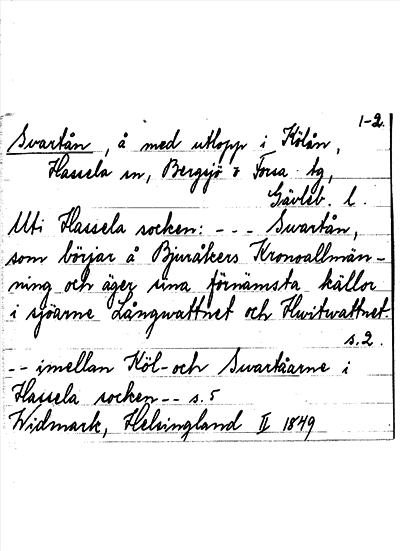 1-2.
Svartån, å med utlopp i Kölån,
Hassela sn, Bergsjö o Forsa tg,
Gävleb. l.
Uti Hassela socken: - - - Svartån,
som börjar å Bjuråkers Kronoallmän-
ning och äger sina förnämsta källor
i sjöarne Långwattnet och Hwitwattnet
s.2.
-- imellan Köl- och Svartåarne i
Hassela socken -- s.5
Widmark, Helsingland II 1849